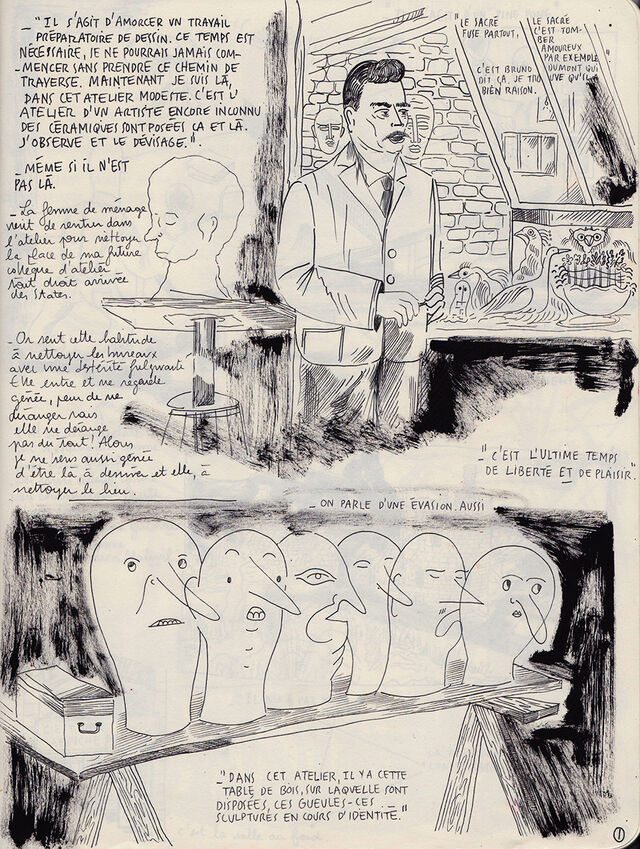 _"IL S'AGIT D'AMORCER UN TRAVAIL
PRÉPARATOIRE DE DESSIN. CE TEMPS EST
NÉCESSAIRE, JE NE POURRAIS JAMAIS COM-
-MENCER SANS PRENDRE CE CHEMIN DE
TRAVERSE. MAINTENANT JE SUIS LÀ,
DANS CET ATELIER MODESTE. C'EST L'
ATELIER D'UN ARTISTE ENCORE INCONNU
DES CÉRAMIQUES SONT POSÉES ÇA ET LÀ.
J'OBSERVE ET LE DÉVISAGE".
_ MÊME SI IL N'EST
PAS LÀ.
_ La femme de ménage
vient de rentrer dans
l'atelier pour nettoyer
la place de ma future
collègue d'atelier
tout droit arrivée
des States.
_ On sent cette habitude
à nettoyer les bureaux
avec une dextérité fulgurante
Elle entre et me regarde
gênée, peur de me
déranger mais
elle ne dérange
pas du tout! Alors
je me sens aussi gênée
d'être là, à dessiner et elle, à
nettoyer le lieu.
"LE SACRÉ
FUSE PARTOUT,
LE SACRÉ
C'EST TOM-
BER
AMOUREUX
PAR EXEMPLE
C'EST BRUNO DUMONT QUI
DIT ÇA JE TROUVE QU'IL A
BIEN RAISON.
_" C'EST L'ULTIME TEMPS
DE LIBERTÉ ET DE PLAISIR."
_ ON PARLE D'UNE ÉVASION. AUSSI
_"DANS CET ATELIER, IL Y A CETTE
TABLE DE BOIS, SUR LAQUELLE SONT
DISPOSÉES, CES GUEULES-CES
SCULPTURES EN COURS D'IDENTITÉ."
1